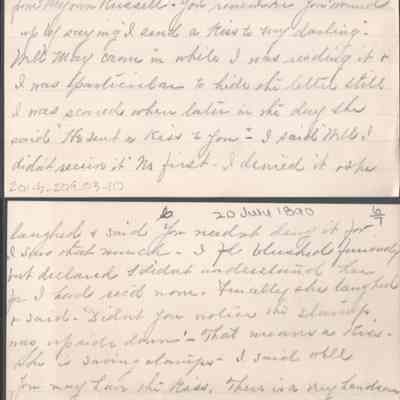 from My own Russell. You remember you wound
up by saying I send a kiss to my darling.
Well May came in while I was reading it &
I was particular to hide the letter still
I was scared when later in the day she
said "He sent a kiss to you" - I said Well I
didnt receive it" No first - I denied it & she
2014.209.03-10
6 20 July 1890 6/7
laughed & said You neednt deny it for
I saw that much. - I blushed furiously
but declared I didnt understand her
for I had read none. Finally she laughed
& said. Didnt you notice the stamp
was up side down" - That means a kiss.
She is saving stamps - I said well
You may have the kiss. There is a very handsome